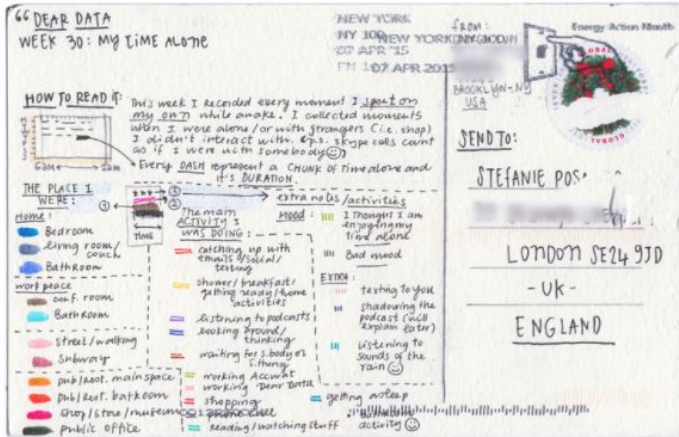 DEAR DATA
WEEK 30: MY TIME ALONE
NEW YORK
NY 100
NEW YORK
07 APR '15
07 APR 2015
FROM:
BROOKLYN-NY
USA
Energy Action Month
GLOBAL
GLOBAL
HOW TO READ IT:
This week I recorded every moment I spent on
my own while awake. I collected moments
when I were alone/or with strangers (i.e. shop)
I didn't interact with. (p.s. skype calls count
as if I were with somebody)
Every DASH represent a CHUNK of time alone and
it's DURATION.
6AM
THE PLACE I
WERE:
Home:
Bedroom
living room/
couch
Bathroom
work peace
conf. room
Bathroom
street/walking
Subway
pub/Rest. main space
pub/Rest. bathroom
shop/store/museum
public office
TIME
The main
ACTIVITY I
WAS DOING:
catching up with
emails/social/
texting
shower/breakfast/
getting ready/home
activities
listening to podcasts
looking around/
thinking
waiting for s.body or
s.thing
working Accurat
working Dear Data
shopping
phone call
reading/watching stuff
getting asleep
activity
extra notes/activities
mood:
I thought I am
enjoying my
time alone
Bad mood
EXTRA:
texting to you
shadowing the
podcast (will
explain later)
listening to
sounds of the
rain
SEND TO:
STEFANIE POS
LONDON SE24 9JD
-UK-
ENGLAND